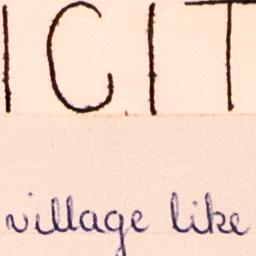 ICIT
village like